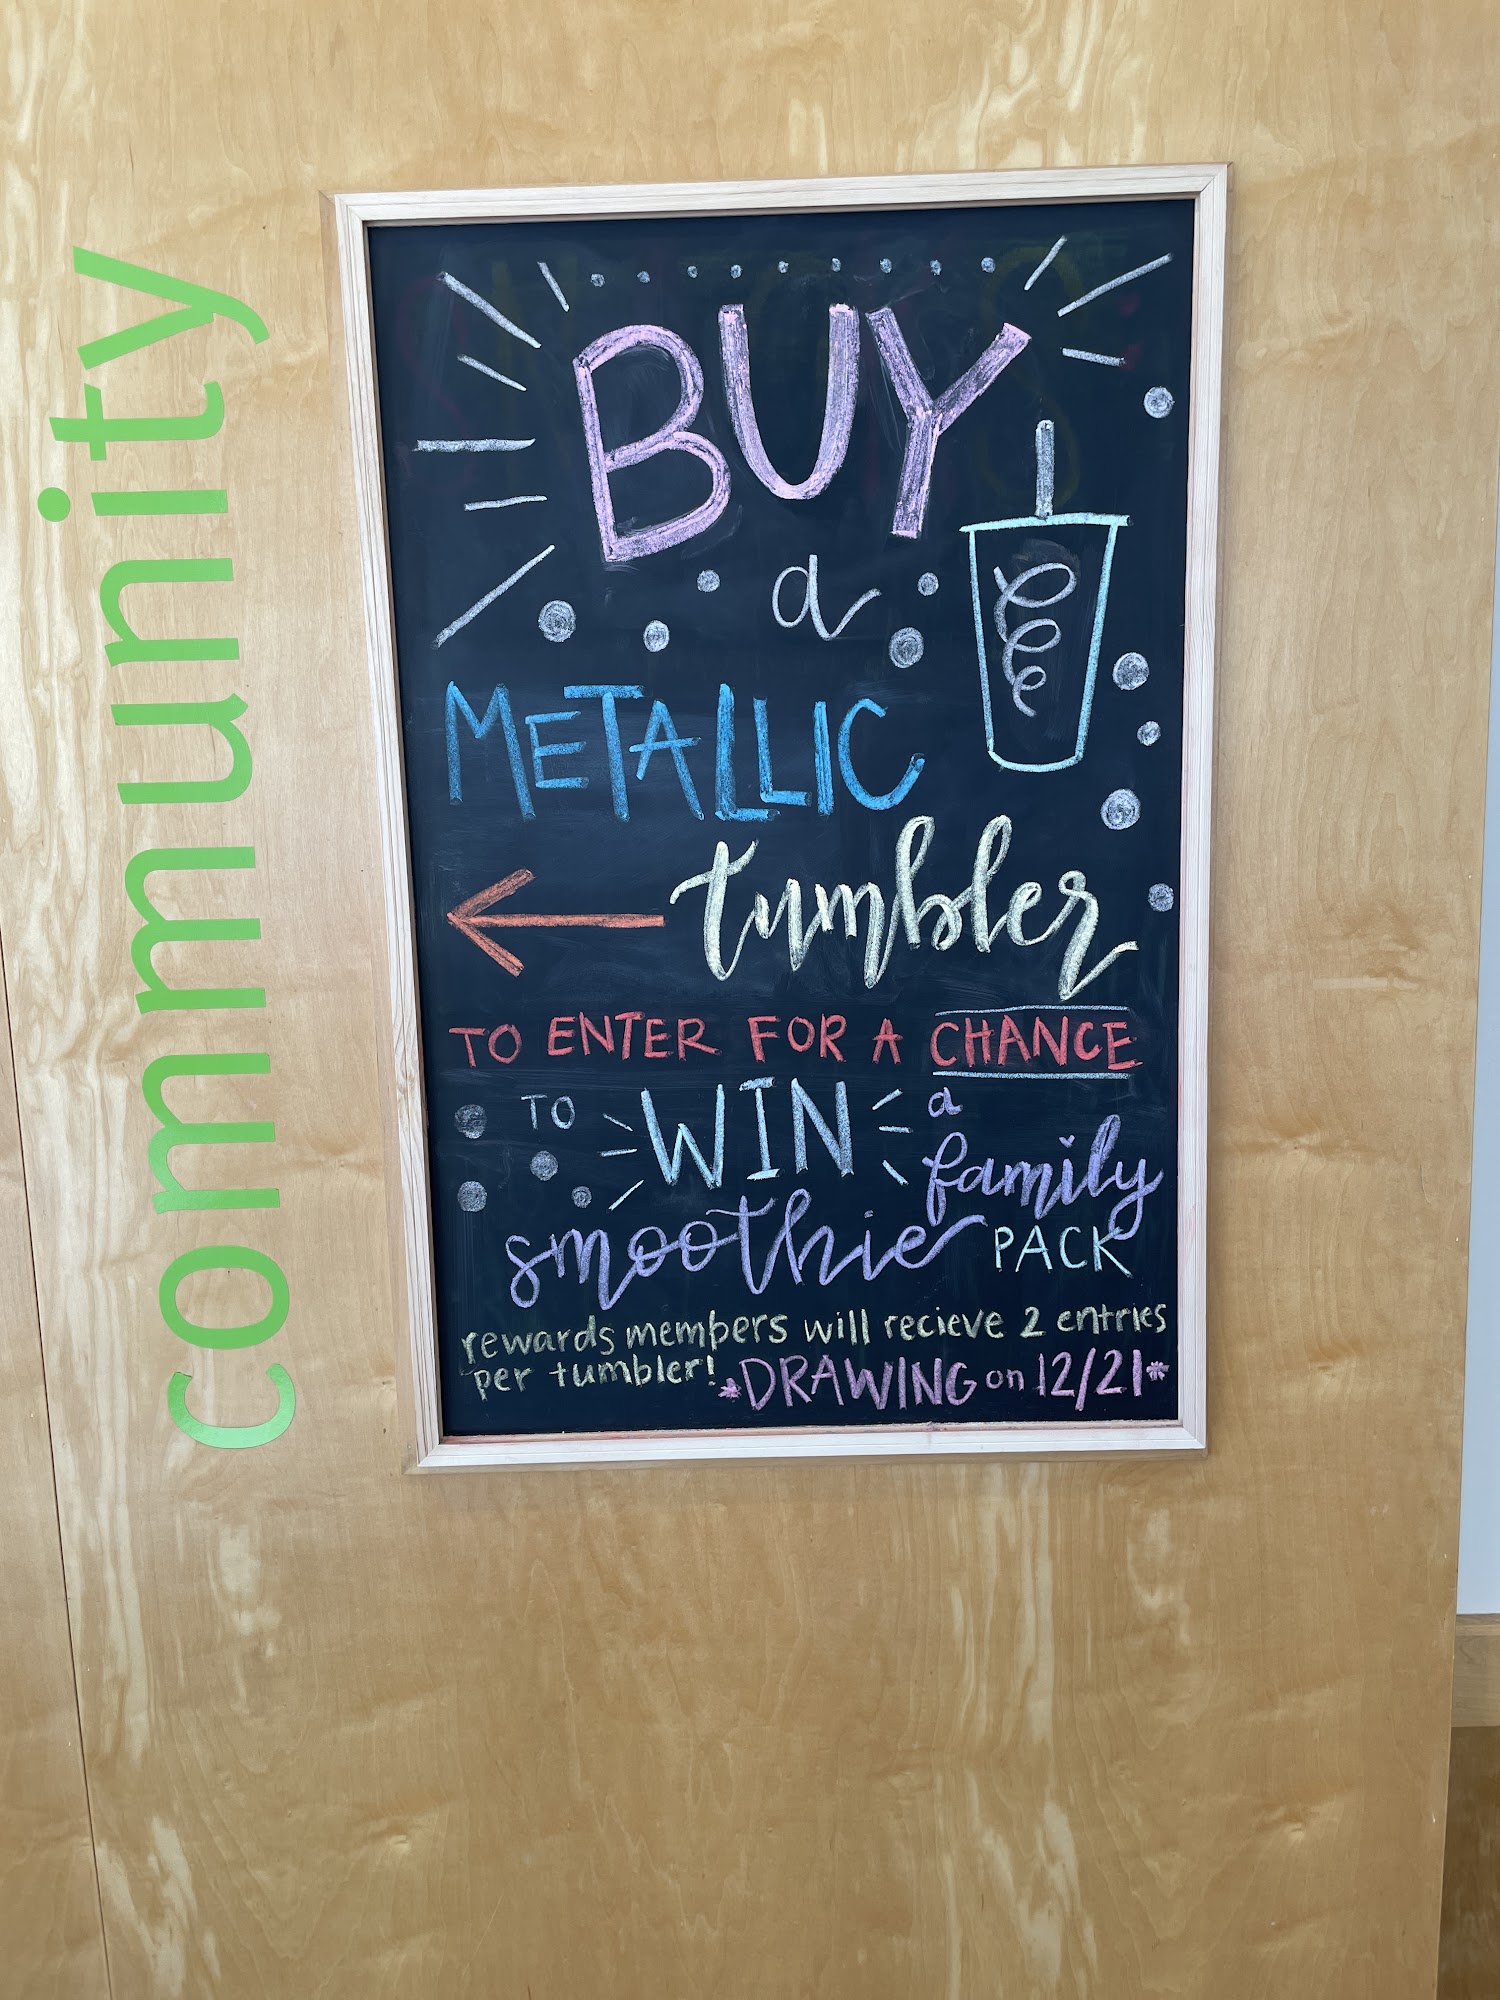 community
BUY
a
METALLIC
tumbler
TO ENTER FOR A CHANCE
TO WIN a
family
smoothie PACK
rewards members will recieve 2 entries
per tumbler! *DRAWING on 12/21*